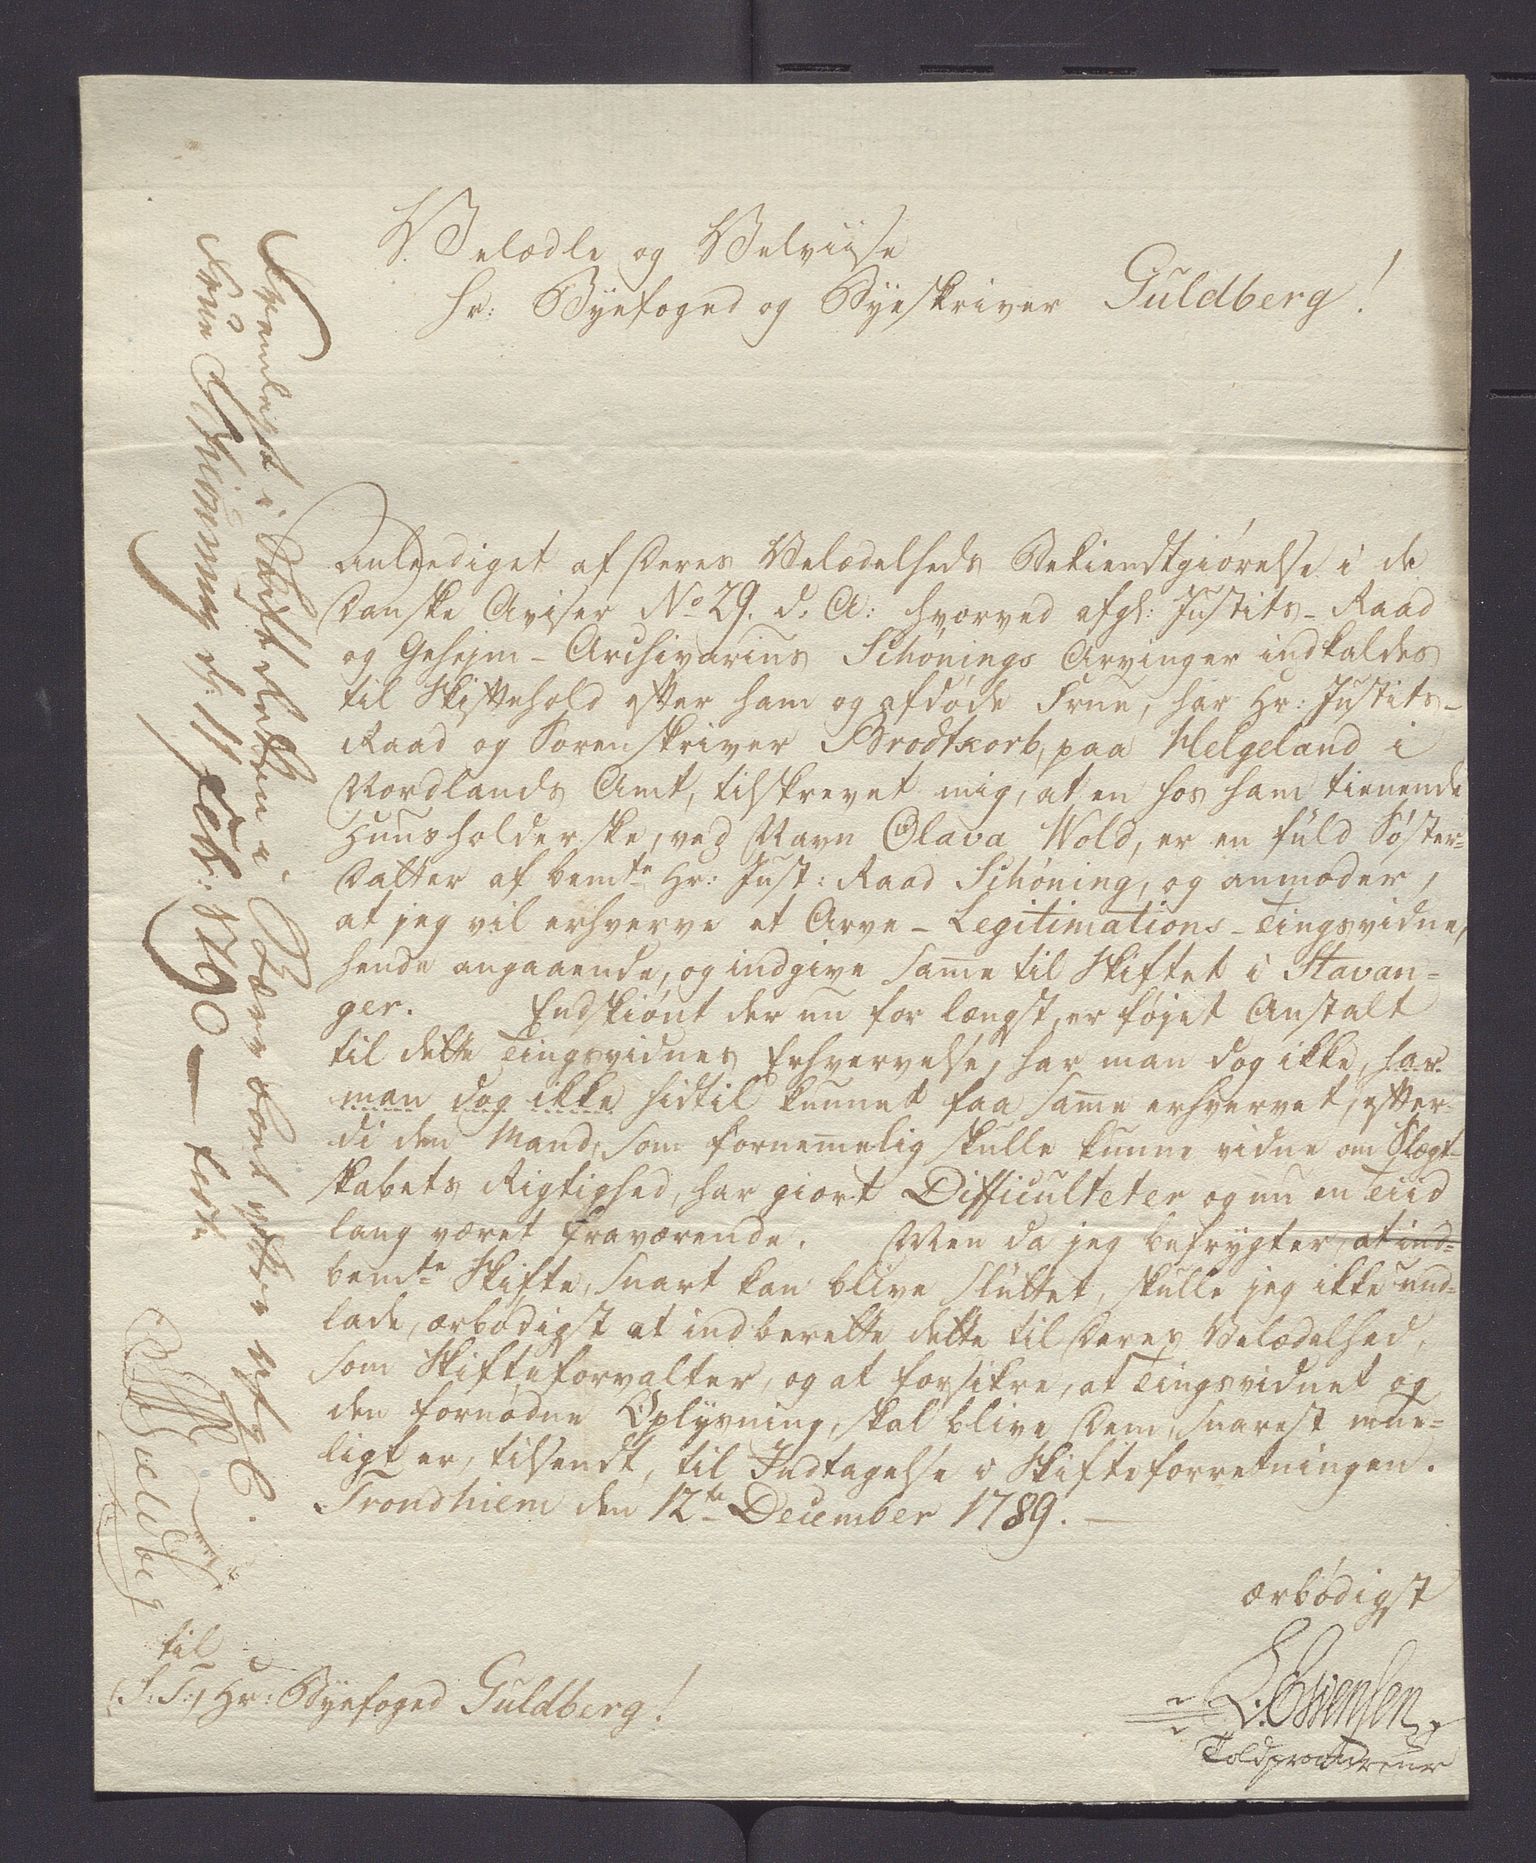 Velædle og Velviise
Hr: Byefoged og Byeskriver Guldberg!
Anleediget af Deres Velædelheds Bekiendtgiørelse i de
Danske Aviser No 29. d. A: hvorved afg: Justits-Raad
og Gehejm-Archivarius Schönings Arvinger indkaldes
til Skiftehold efter ham og afdøde Frue, har Hr: Justits-
Raad og Sorenskriver Brodtkorb, paa Helgeland i
Nordlands Amt, tilskrevet mig, at en hos ham tienende
Huusholderske, ved Navn Olava Wold, er en fuld Søster-
Datter af bemte Hr: Just: Raad Schöning, og anmoder,
at jeg vil erhverve et Arve-Legitimations-Tingsvidne,
hende angaaende, og indgive same til Skiftet i Stavan-
ger. Endskiønt der nu for længst, er føjet Anstalt
til dette Tingsvidnes Erhvervelse, har man dog ikke, har
man dog ikke hidtil kunnet faa same erhvervet, efter-
di den Mand, som fornemelig skulle kunne vidne om Slægt-
skabets Rigtighed, har giort Difficulteter og nu en Tiid
lang været fraværende. Men da jeg befrygter, at ind-
bemte Skifte, snart kan blive sluttet, skulle jeg ikke und-
lade, ærbødigst at indberette dette til Deres Velædelhed,
som Skifteforvalter, og at forsikre, at Tingsvidnet og
den fornødne Oplysning, skal blive Dem, snarest mue-
ligt er, tilsendt, til Indtagelse i Skifteforretningen.
Trondhiem den 12te December 1789.
ærbødigst
Toldprocureur
til
S: T:, Hr: Byefoged Guldberg!
Fremlagt i Skifte Retten i Boet efter afg
Frue Schiønning d: 11 Febr: 1790 - test
Guldberg